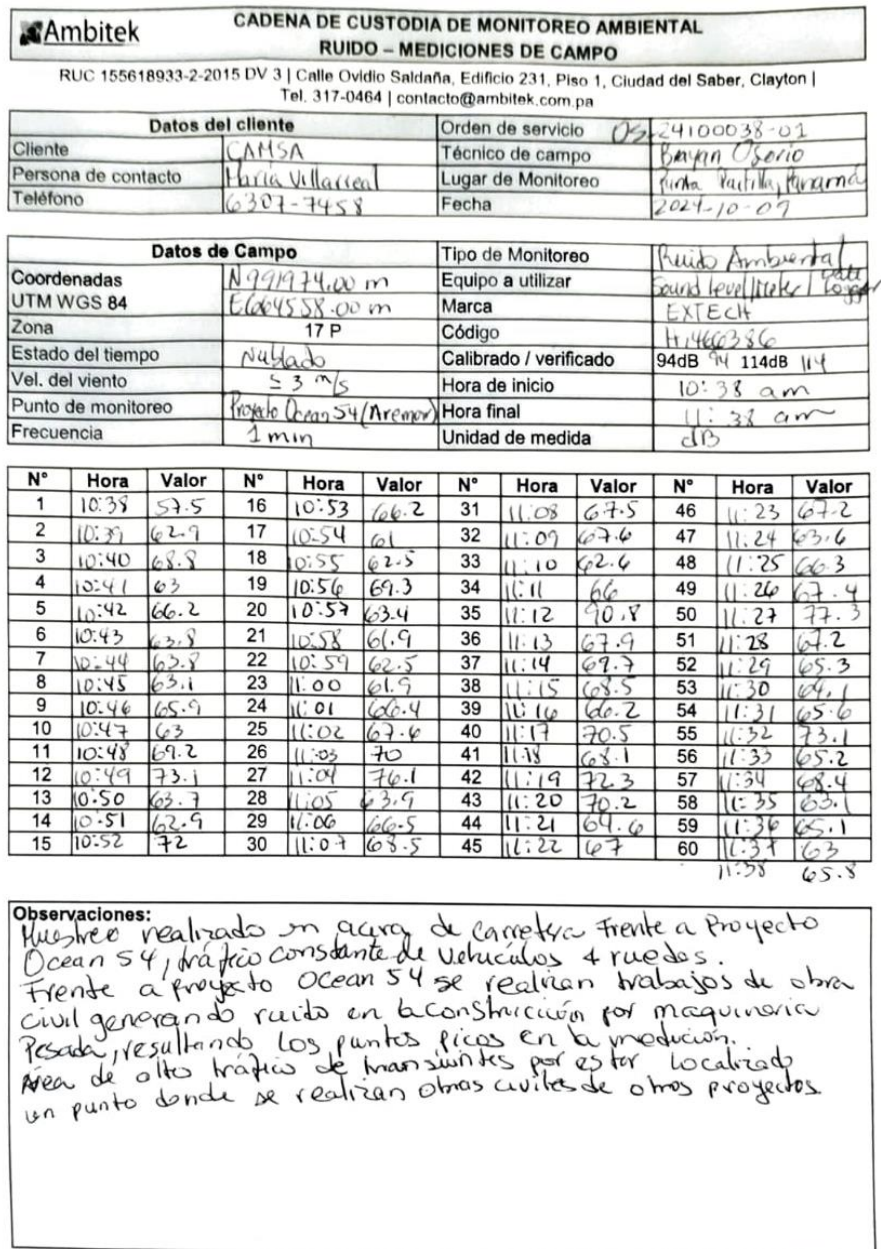 Ambitek
CADENA DE CUSTODIA DE MONITOREO AMBIENTAL
RUIDO – MEDICIONES DE CAMPO
RUC 155618933-2-2015 DV 3 | Calle Ovidio Saldaña, Edificio 231, Piso 1, Ciudad del Saber, Clayton |
Tel. 317-0464 | contacto@ambitek.com.pa
Datos del cliente Orden de servicio OS-24100038-01
Cliente CAMSA Técnico de campo Brayan Osorio
Persona de contacto María Villarreal Lugar de Monitoreo Punta Paitilla, Panamá
Teléfono 6307-7458 Fecha 2024-10-09
Datos de Campo Tipo de Monitoreo Ruido Ambiental
Coordenadas N 991974.00 m Equipo a utilizar Sound level Meter / Data Logger
UTM WGS 84 E664558.00 m Marca EXTECH
Zona 17 P Código H.1466386
Estado del tiempo Nublado Calibrado / verificado 94dB 94 114dB 114
Vel. del viento ≤ 3 m/s Hora de inicio 10:38 am
Punto de monitoreo Proyecto Ocean 54 (Aremar) Hora final 11:38 am
Frecuencia 1 min Unidad de medida dB
N° Hora Valor N° Hora Valor N° Hora Valor N° Hora Valor
1 10:38 57.5 16 10:53 66.2 31 11:08 67.5 46 11:23 67.2
2 10:39 62.9 17 10:54 61 32 11:09 67.6 47 11:24 63.6
3 10:40 68.8 18 10:55 62.5 33 11:10 62.6 48 11:25 66.3
4 10:41 63 19 10:56 69.3 34 11:11 66 49 11:26 67.4
5 10:42 66.2 20 10:57 63.4 35 11:12 70.8 50 11:27 77.3
6 10:43 63.8 21 10:58 61.9 36 11:13 67.9 51 11:28 67.2
7 10:44 63.8 22 10:59 62.5 37 11:14 69.7 52 11:29 65.3
8 10:45 63.1 23 11:00 61.9 38 11:15 68.5 53 11:30 64.1
9 10:46 65.9 24 11:01 66.4 39 11:16 66.2 54 11:31 65.6
10 10:47 63 25 11:02 67.6 40 11:17 70.5 55 11:32 73.1
11 10:48 69.2 26 11:03 70 41 11:18 68.1 56 11:33 65.2
12 10:49 73.1 27 11:04 76.1 42 11:19 72.3 57 11:34 68.4
13 10:50 63.7 28 11:05 63.9 43 11:20 70.2 58 11:35 63.1
14 10:51 62.9 29 11:06 66.5 44 11:21 64.6 59 11:36 65.1
15 10:52 72 30 11:07 68.5 45 11:22 67 60 11:37 63
11:38 65.8
Observaciones:
Muestreo realizado en acera de carretera Frente a Proyecto
Ocean 54, tráfico constante de vehículos 4 ruedas.
Frente a proyecto Ocean 54 se realizan trabajos de obra
civil generando ruido en la construcción por maquinaria
Pesada, resultando los puntos picos en la medición.
Área de alto tráfico de transiuntes por estar localizado
en punto donde se realizan obras civiles de otros proyectos.